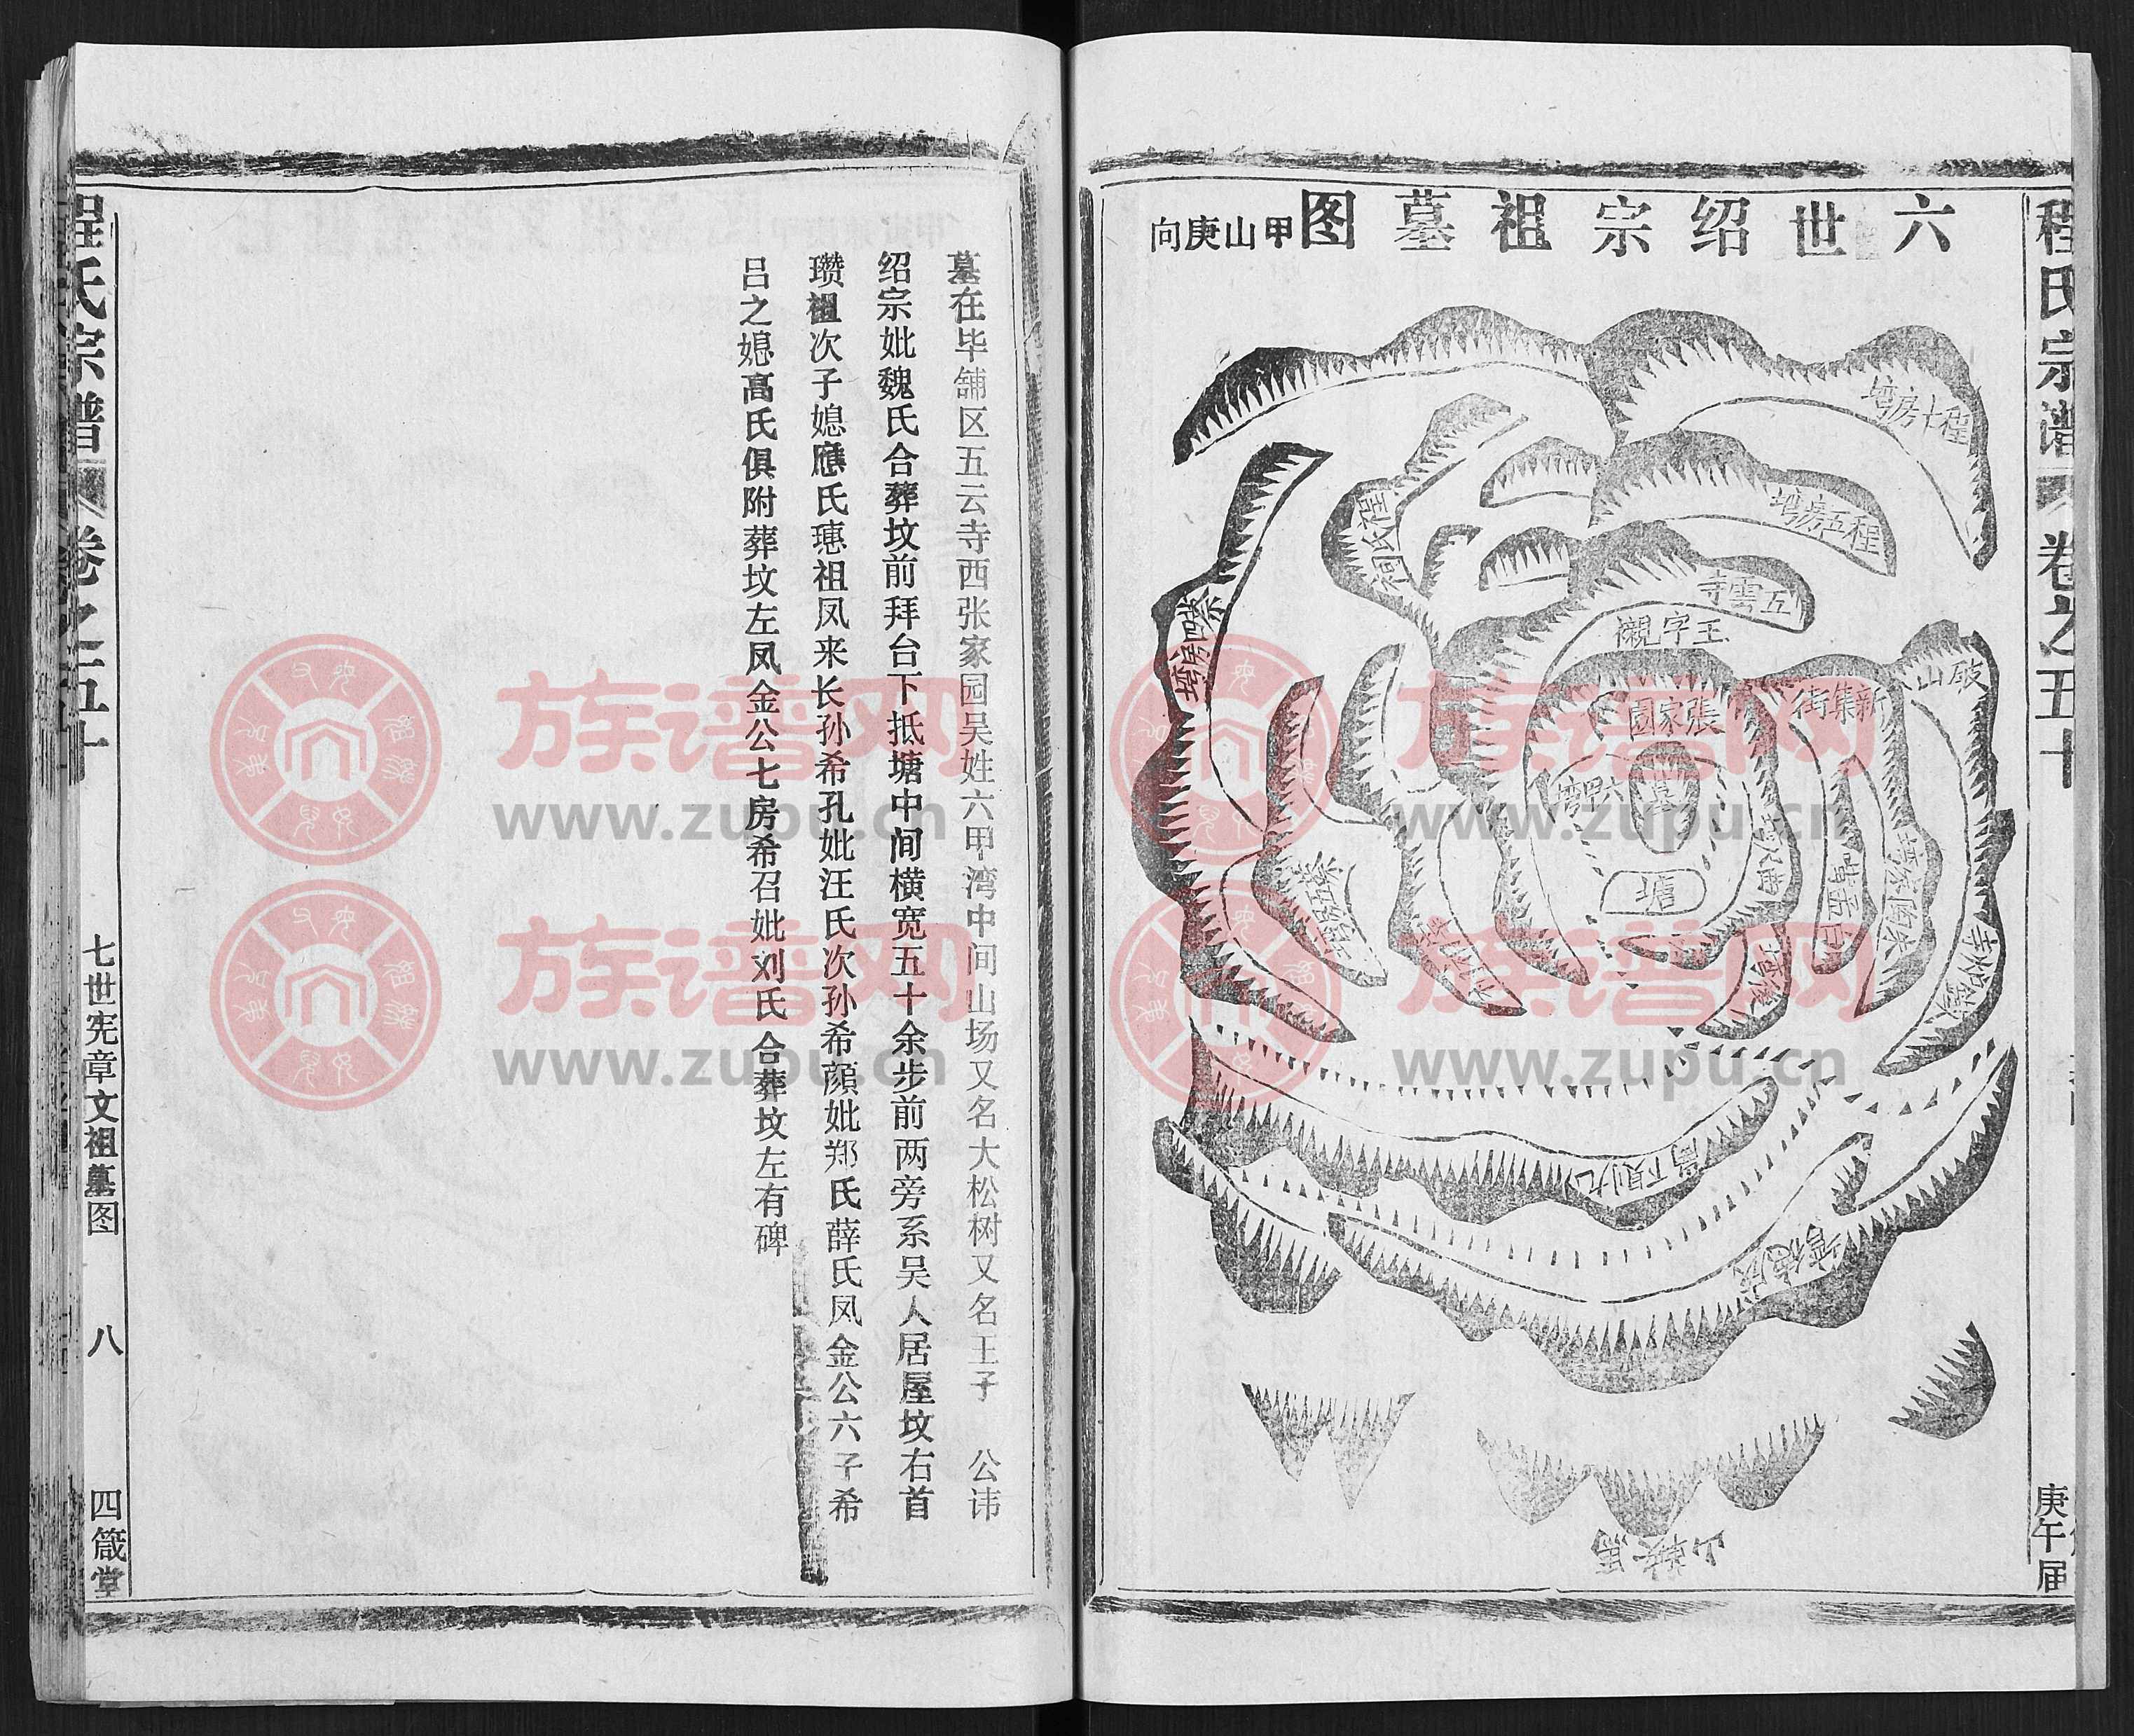 程氏宗谱
卷之五十
庚午届
六世绍宗祖墓图 甲山庚向
程十房塆
程五房塆
程氏祠
五雲寺
王字襯
蔡四房塆
破山
新集街
張家園
六甲塆
墓
塘
高下則九
馬鞍山
墓在毕舖区五云寺西张家园吴姓六甲湾中间山场又名大松树又名王子 公讳
绍宗妣魏氏合葬坟前拜台下抵塘中间横宽五十余步前两旁系吴人居屋坟右首
瓒祖次子媳應氏璁祖凤来长孙希孔妣汪氏次孙希顔妣郑氏薛氏凤金公六子希
吕之媳髙氏俱附葬坟左凤金公七房希召妣刘氏合葬坟左有碑
程氏宗谱
卷之五十
七世宪章文祖墓图
八
四箴堂
族谱网
www.zupu.cn
族谱网
www.zupu.cn
族谱网
www.zupu.cn
族谱网
www.zupu.cn